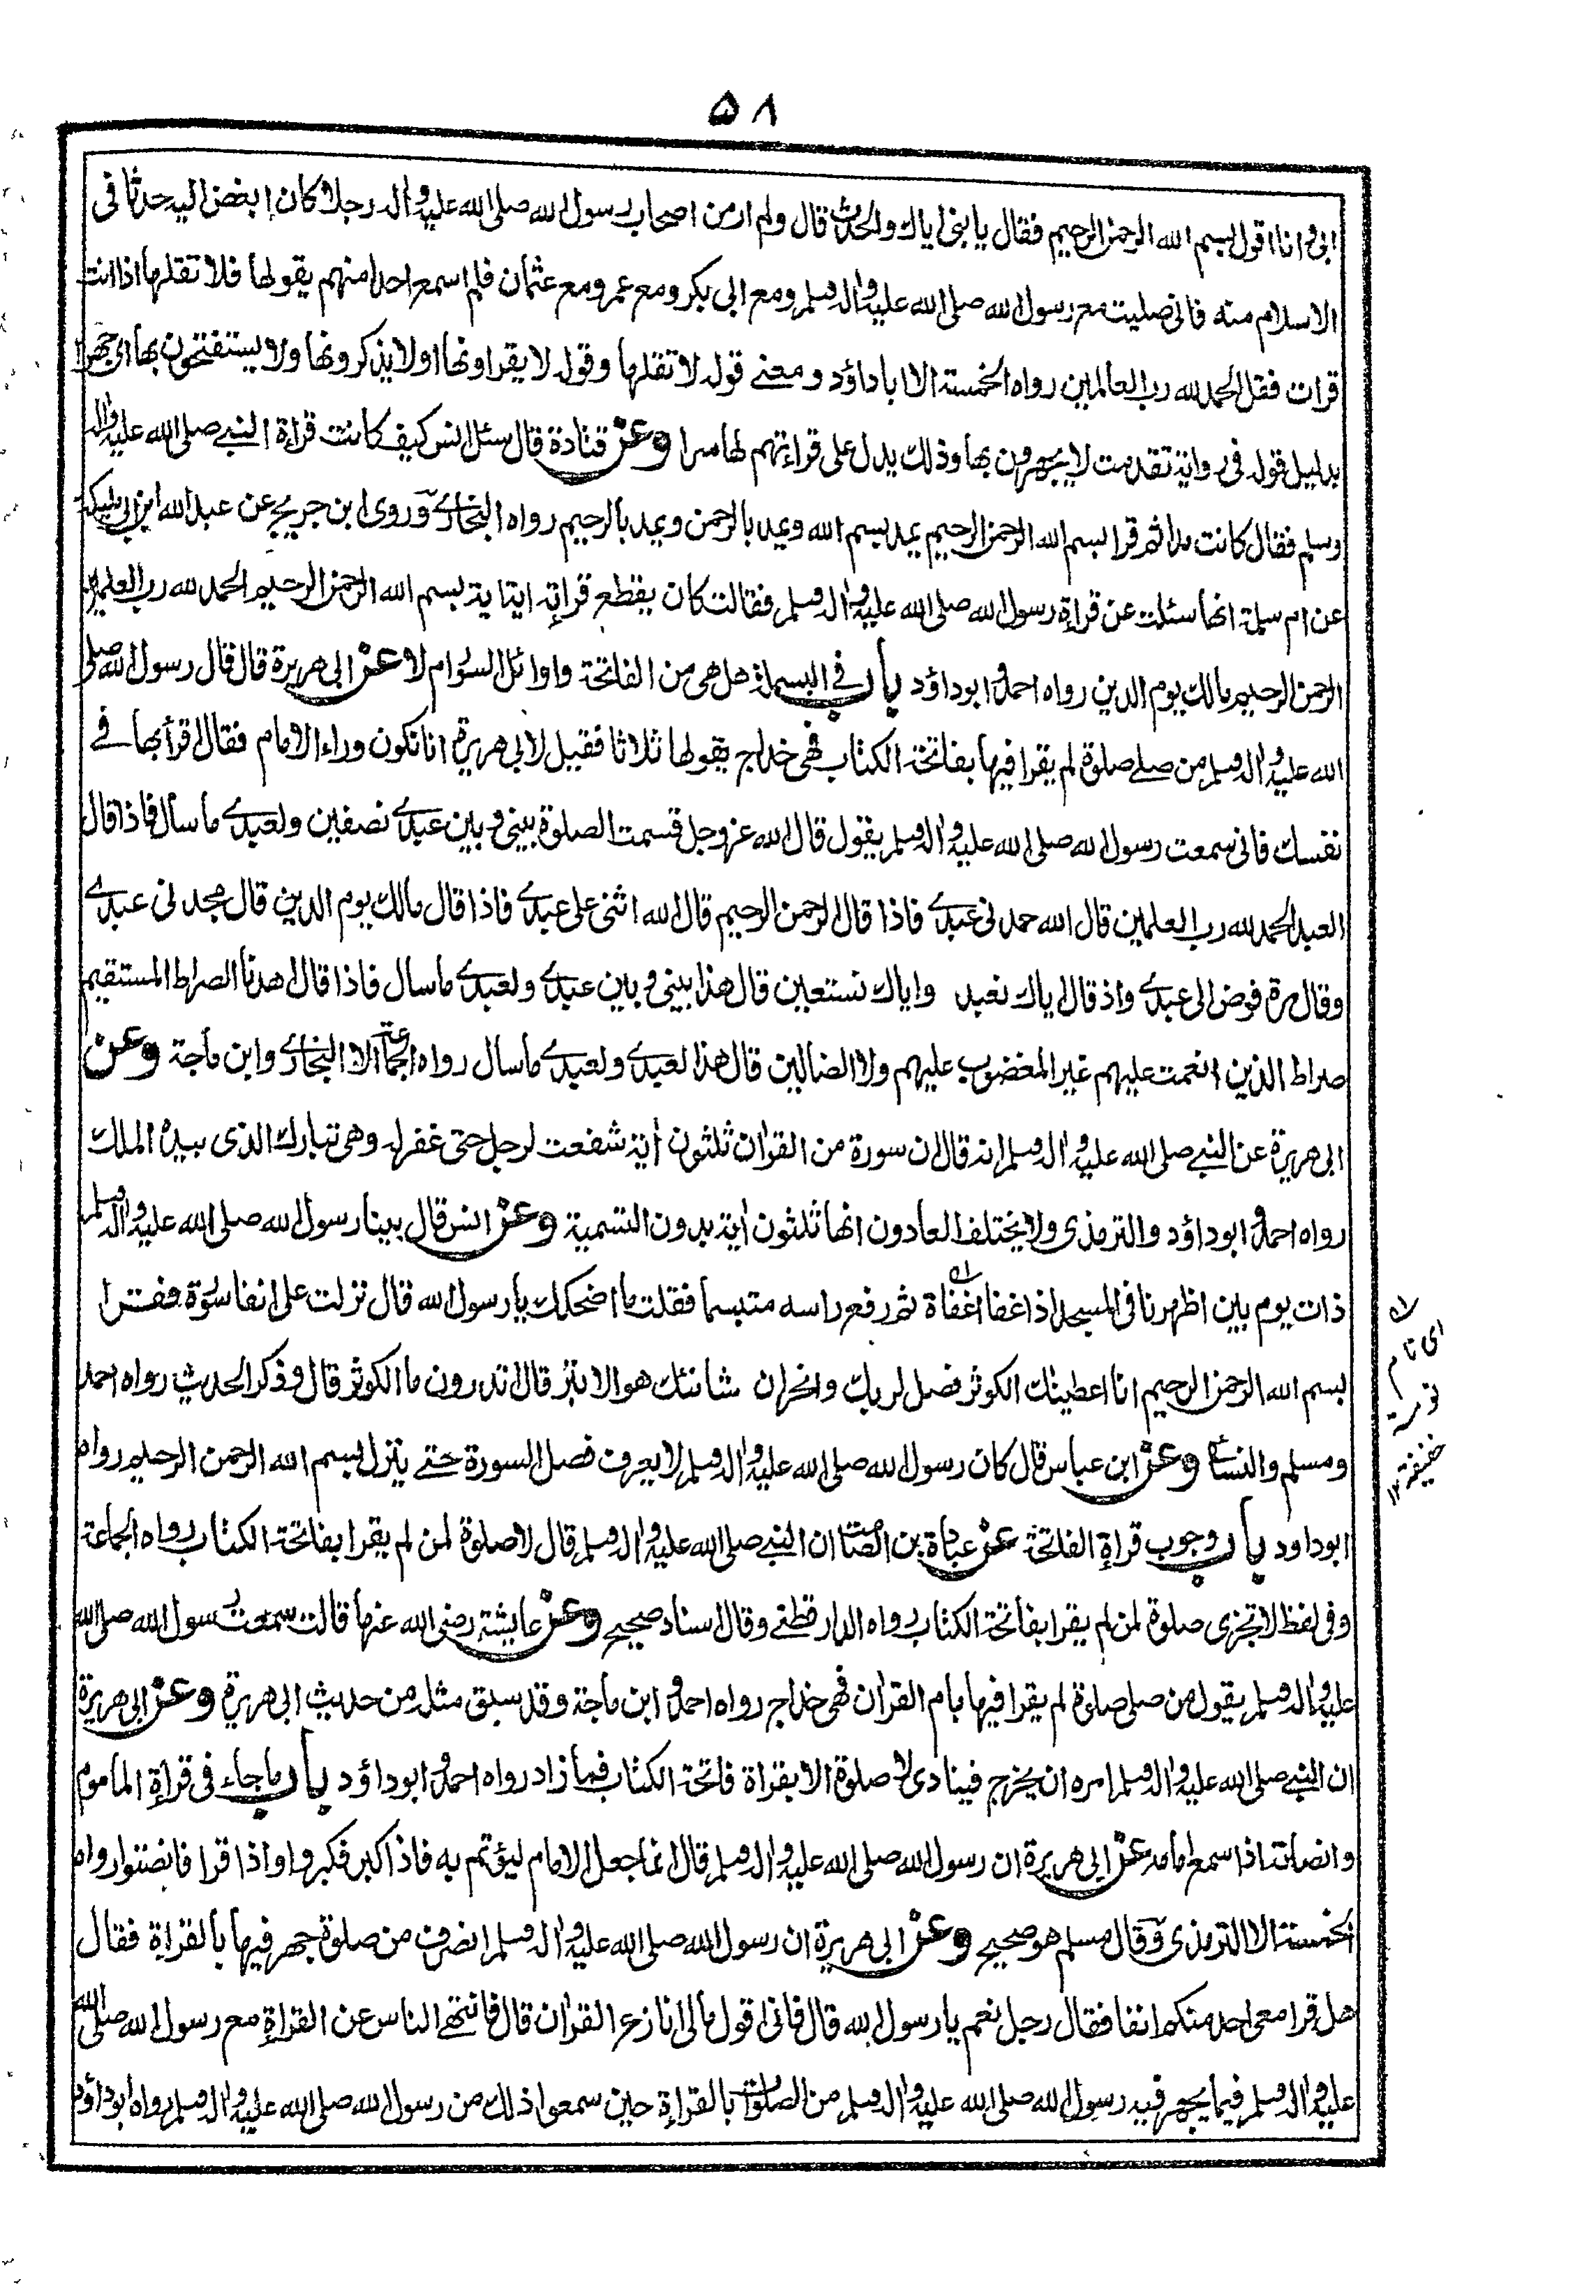 ۵۸
ابى وانا اقول بسم الله الرحمن الرحيم فقال يا بنى اياك والحدث قال ولم ار من اصحاب رسول الله صلى الله عليه واله رجلا كان ابغض اليه حدثا فى
الاسلام منه فانى صليت مع رسول الله صلى الله عليه واله وسلم ومع ابى بكر ومع عمر ومع عثمان فلم اسمع احدا منهم يقولها فلا تقلها اذا انت
قرات فقل الحمد لله رب العالمين رواه الخمسة الا ابا داؤد ومعنے قوله لا تقلها وقوله لا يقراونها اولا يذكرونها ولا يستفتحون بها اى جهرا
بدليل قوله فى رواية تقدمت لا يجهرون بها وذلك يدل على قراءتهم لها سرا وعن قتادة قال سئل انس كيف كانت قراءة النبے صلى الله عليه واله
وسلم فقال كانت مدا ثم قرا بسم الله الرحمن الرحيم يمد بسم الله ويمد بالرحمن ويمد بالرحيم رواه البخارے وروى ابن جريج عن عبد الله ابن ابى مليكة
عن ام سلمة انها سئلت عن قراءة رسول الله صلى الله عليه واله وسلم فقالت كان يقطع قراته اية اية بسم الله الرحمن الرحيم الحمد لله رب العلمين
الرحمن الرحيم مالك يوم الدين رواه احمد وابو داؤد باب فے البسملة هل هى من الفاتحة واوائل السور ام لا عن ابى هريرة قال قال رسول الله صلى
الله عليه واله وسلم من صلے صلوة لم يقرا فيها بفاتحة الكتاب فهى خداج يقولها ثلاثا فقيل لابى هريرة انا نكون وراء الامام فقال اقرأ بها فے
نفسك فانى سمعت رسول الله صلى الله عليه واله وسلم يقول قال الله عز وجل قسمت الصلوة بينى وبين عبدے نصفين ولعبدے ما سأل فاذا قال
العبد الحمد لله رب العلمين قال الله حمدنى عبدے فاذا قال الرحمن الرحيم قال الله اثنى على عبدے فاذا قال مالك يوم الدين قال مجدنى عبدے
وقال مرة فوض الى عبدے واذ قال اياك نعبد واياك نستعين قال هذا بينى وبين عبدے ولعبدے ما سال فاذا قال اهدنا الصراط المستقيم
صراط الذين انعمت عليهم غير المغضوب عليهم ولا الضالين قال هذا لعبدے ولعبدے ما سال رواه الجماعة الا البخارے وابن ماجة وعن
ابى هريرة عن النبے صلى الله عليه واله وسلم انه قال ان سورة من القران ثلثون أية شفعت لرجل حتى غفر له وهى تبارك الذى بيده الملك
رواه احمد وابو داؤد والترمذى ولا يختلف العادون انها ثلثون أية بدون التسمية وعن انس قال بينا رسول الله صلى الله عليه واله وسلم
ذات يوم بين اظهرنا فى المسجد اذا غفا اغفاة ثم رفع راسه متبسما فقلت ما اضحكك يا رسول الله قال نزلت على انفا سورة فقرا
بسم الله الرحمن الرحيم انا اعطينك الكوثر فصل لربك وانحر ان شانئك هو الابتر قال اتدرون ما الكوثر قال وذكر الحديث رواه احمد
ومسلم والنسائے وعن ابن عباس قال كان رسول الله صلى الله عليه واله وسلم لا يعرف فصل السورة حتے ينزل بسم الله الرحمن الرحيم رواه
ابوداود باب وجوب قراءة الفاتحة عن عبادة بن الصامت ان النبے صلى الله عليه واله وسلم قال لا صلوة لمن لم يقرا بفاتحة الكتاب رواه الجماعة
وفى لفظ لا تجزى صلوة لمن لم يقرا بفاتحة الكتاب رواه الدار قطنے وقال اسناد صحيح وعن عايشة رضى الله عنها قالت سمعت رسول الله صلى الله
عليه واله وسلم يقول من صلى صلوة لم يقرا فيها بام القران فهى خداج رواه احمد وابن ماجة وقد سبق مثله من حديث ابى هريرة وعن ابى هريرة
ان النبے صلى الله عليه واله وسلم امره ان يخرج فينادى لا صلوة الا بقراة فاتحة الكتاب فما زاد رواه احمد وابو داؤد باب ما جاء فى قراءة الماموم
وانصاته اذا سمع امامه عن ابى هريرة ان رسول الله صلى الله عليه واله وسلم قال انما جعل الامام ليؤتم به فاذا كبر فكبروا واذا قرا فانصتوا رواه
الخمسة الا الترمذى وقال مسلم هو صحيح وعن ابى هريرة ان رسول الله صلى الله عليه واله وسلم انصرف من صلوة جهر فيها بالقراءة فقال
هل قرا معى احد منكم انفا فقال رجل نعم يا رسول الله قال فانى اقول مالى انازع القران قال فانتهے الناس عن القراءة مع رسول الله صلى الله
عليه واله وسلم فيما يجهر فيه رسول الله صلى الله عليه واله وسلم من الصلوات بالقراءة حين سمعوا ذلك من رسول الله صلى الله عليه واله وسلم رواه ابو داؤد
اى نام
نومة
خفيفة ١٢